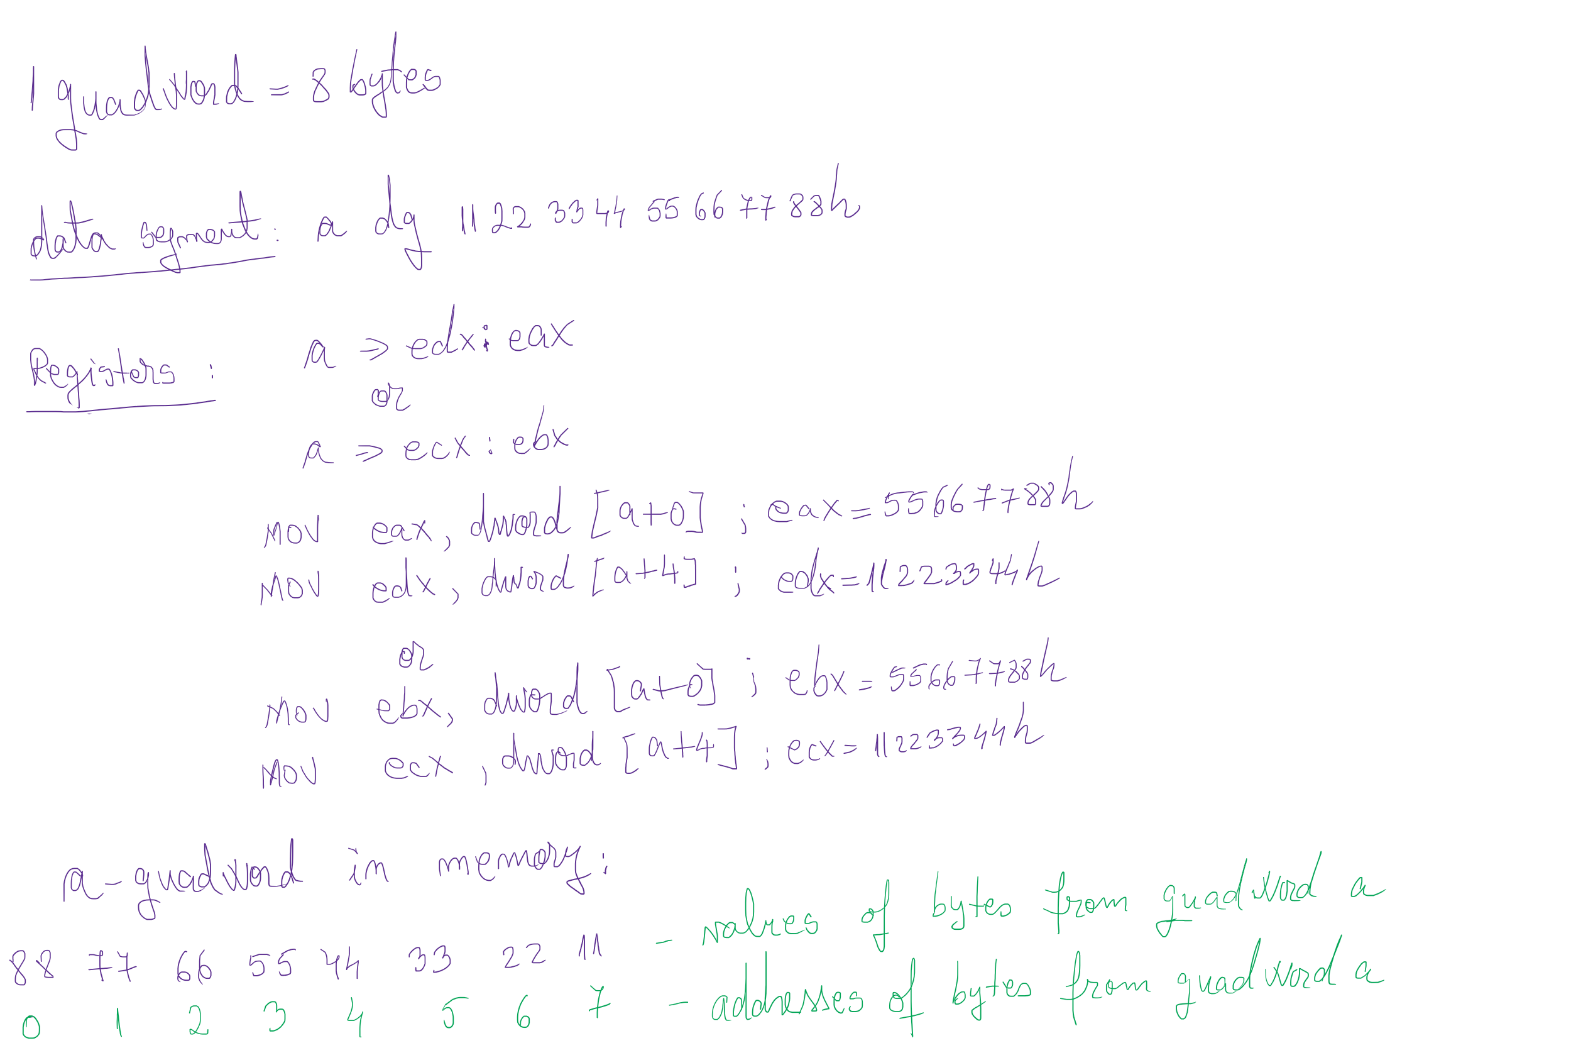 1 quadword = 8 bytes
data segment: a dq 11 22 33 44 55 66 77 88h
Registers : a => edx : eax
or
a => ecx : ebx
MOV eax, dword [a+0] ; eax = 55667788h
MOV edx, dword [a+4] ; edx = 11223344h
or
MOV ebx, dword [a+0] ; ebx = 55667788h
MOV ecx, dword [a+4] ; ecx = 11223344h
a - quadword in memory:
88 77 66 55 44 33 22 11 - values of bytes from quadword a
0 1 2 3 4 5 6 7 - addresses of bytes from quadword a